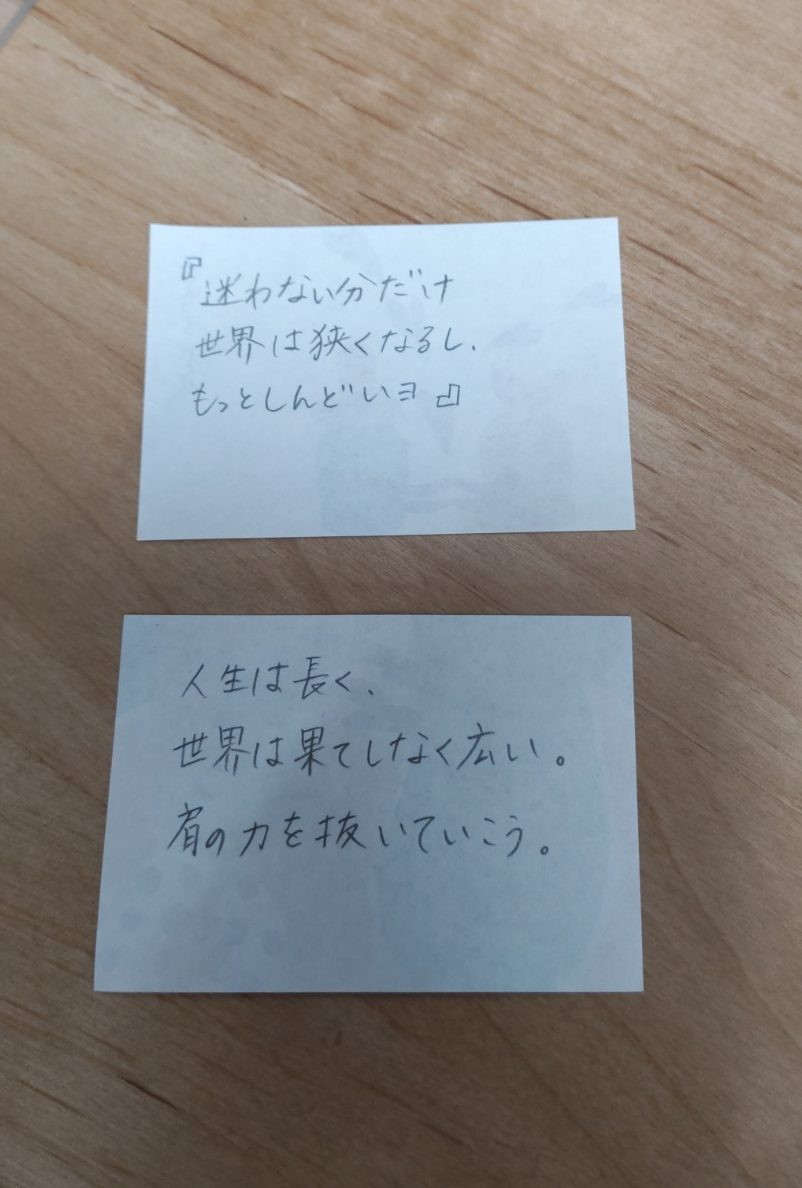 『迷わない分だけ
世界は狭くなるし、
もっとしんどいヨ』
人生は長く、
世界は果てしなく広い。
肩の力を抜いていこう。